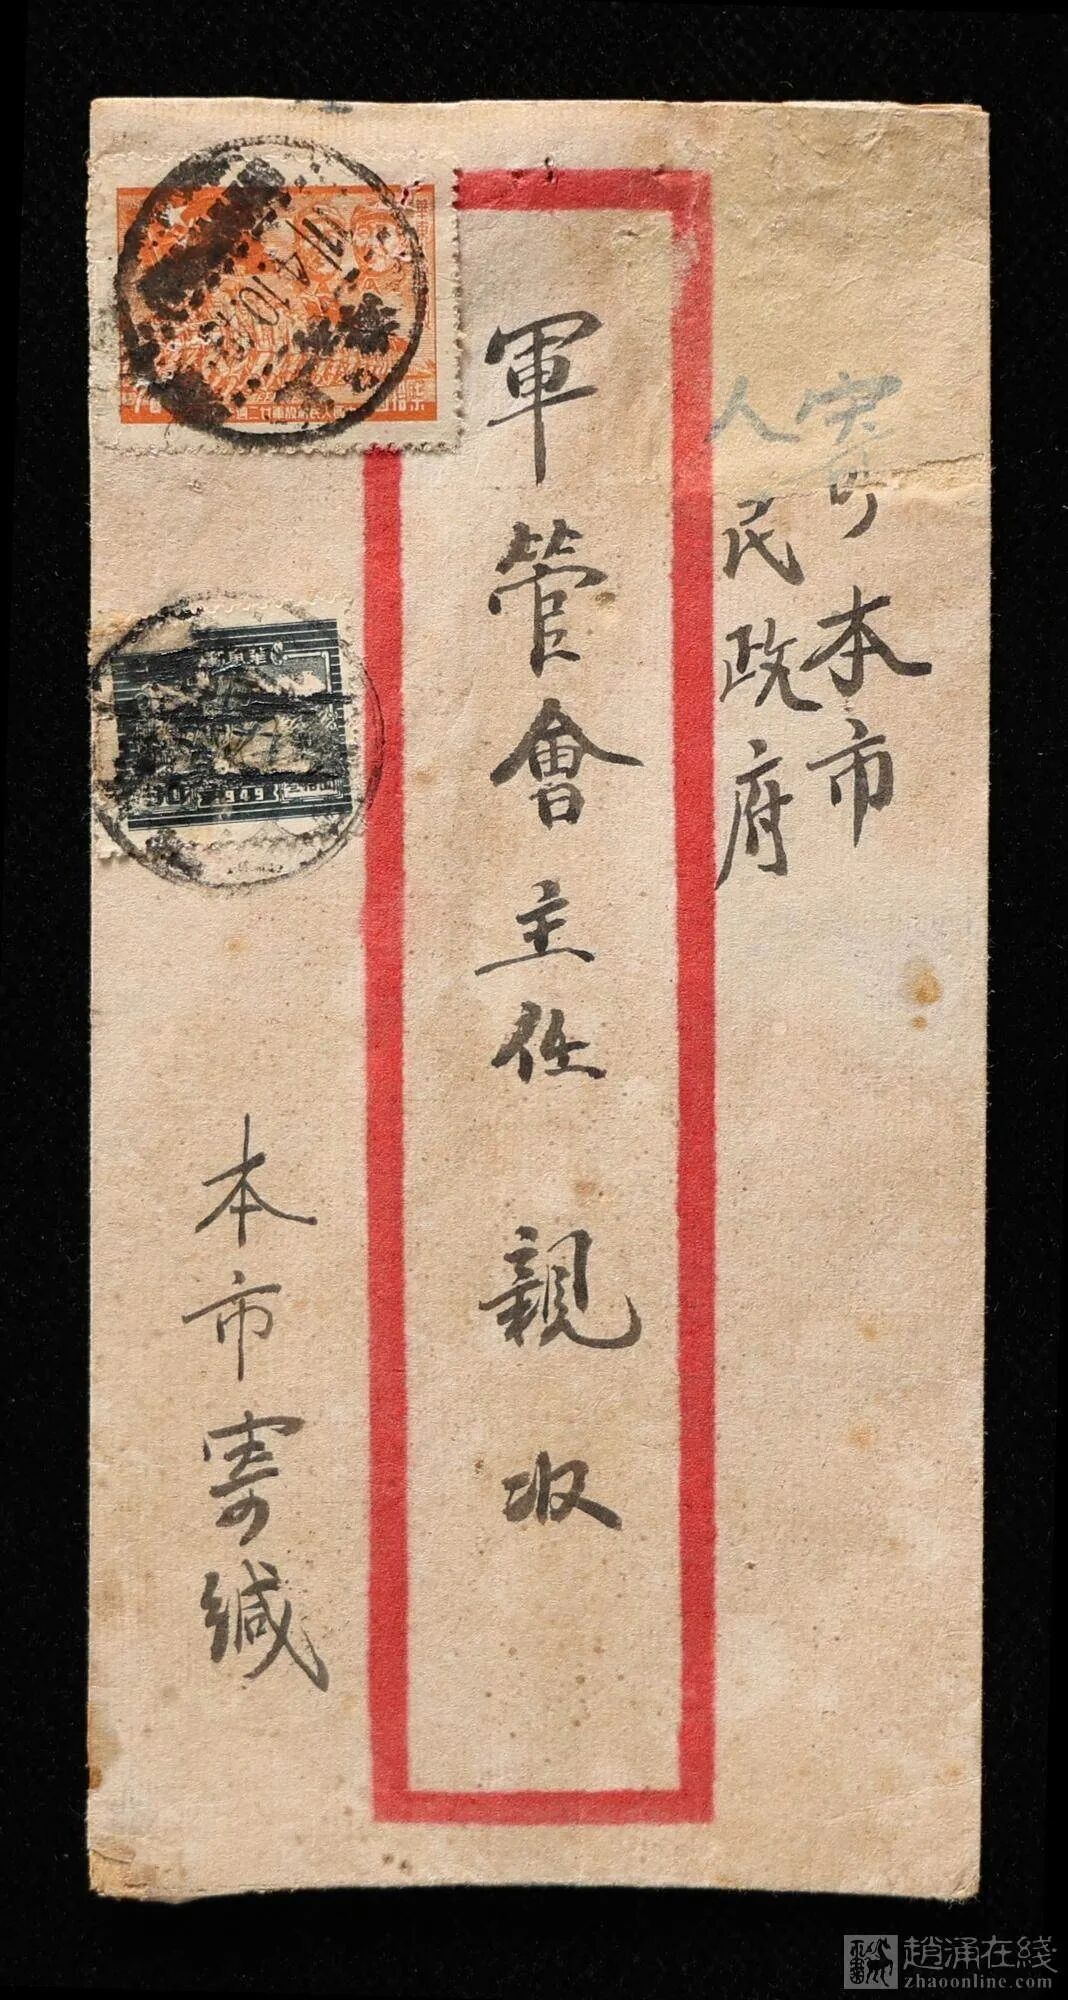 寄本市
人民政府
軍管會主任 親收
本市寄緘
華東
1949
趙涌在綫
zhaoonline.com